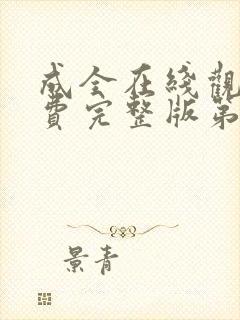 成全在綫觀
費完整版第
景青